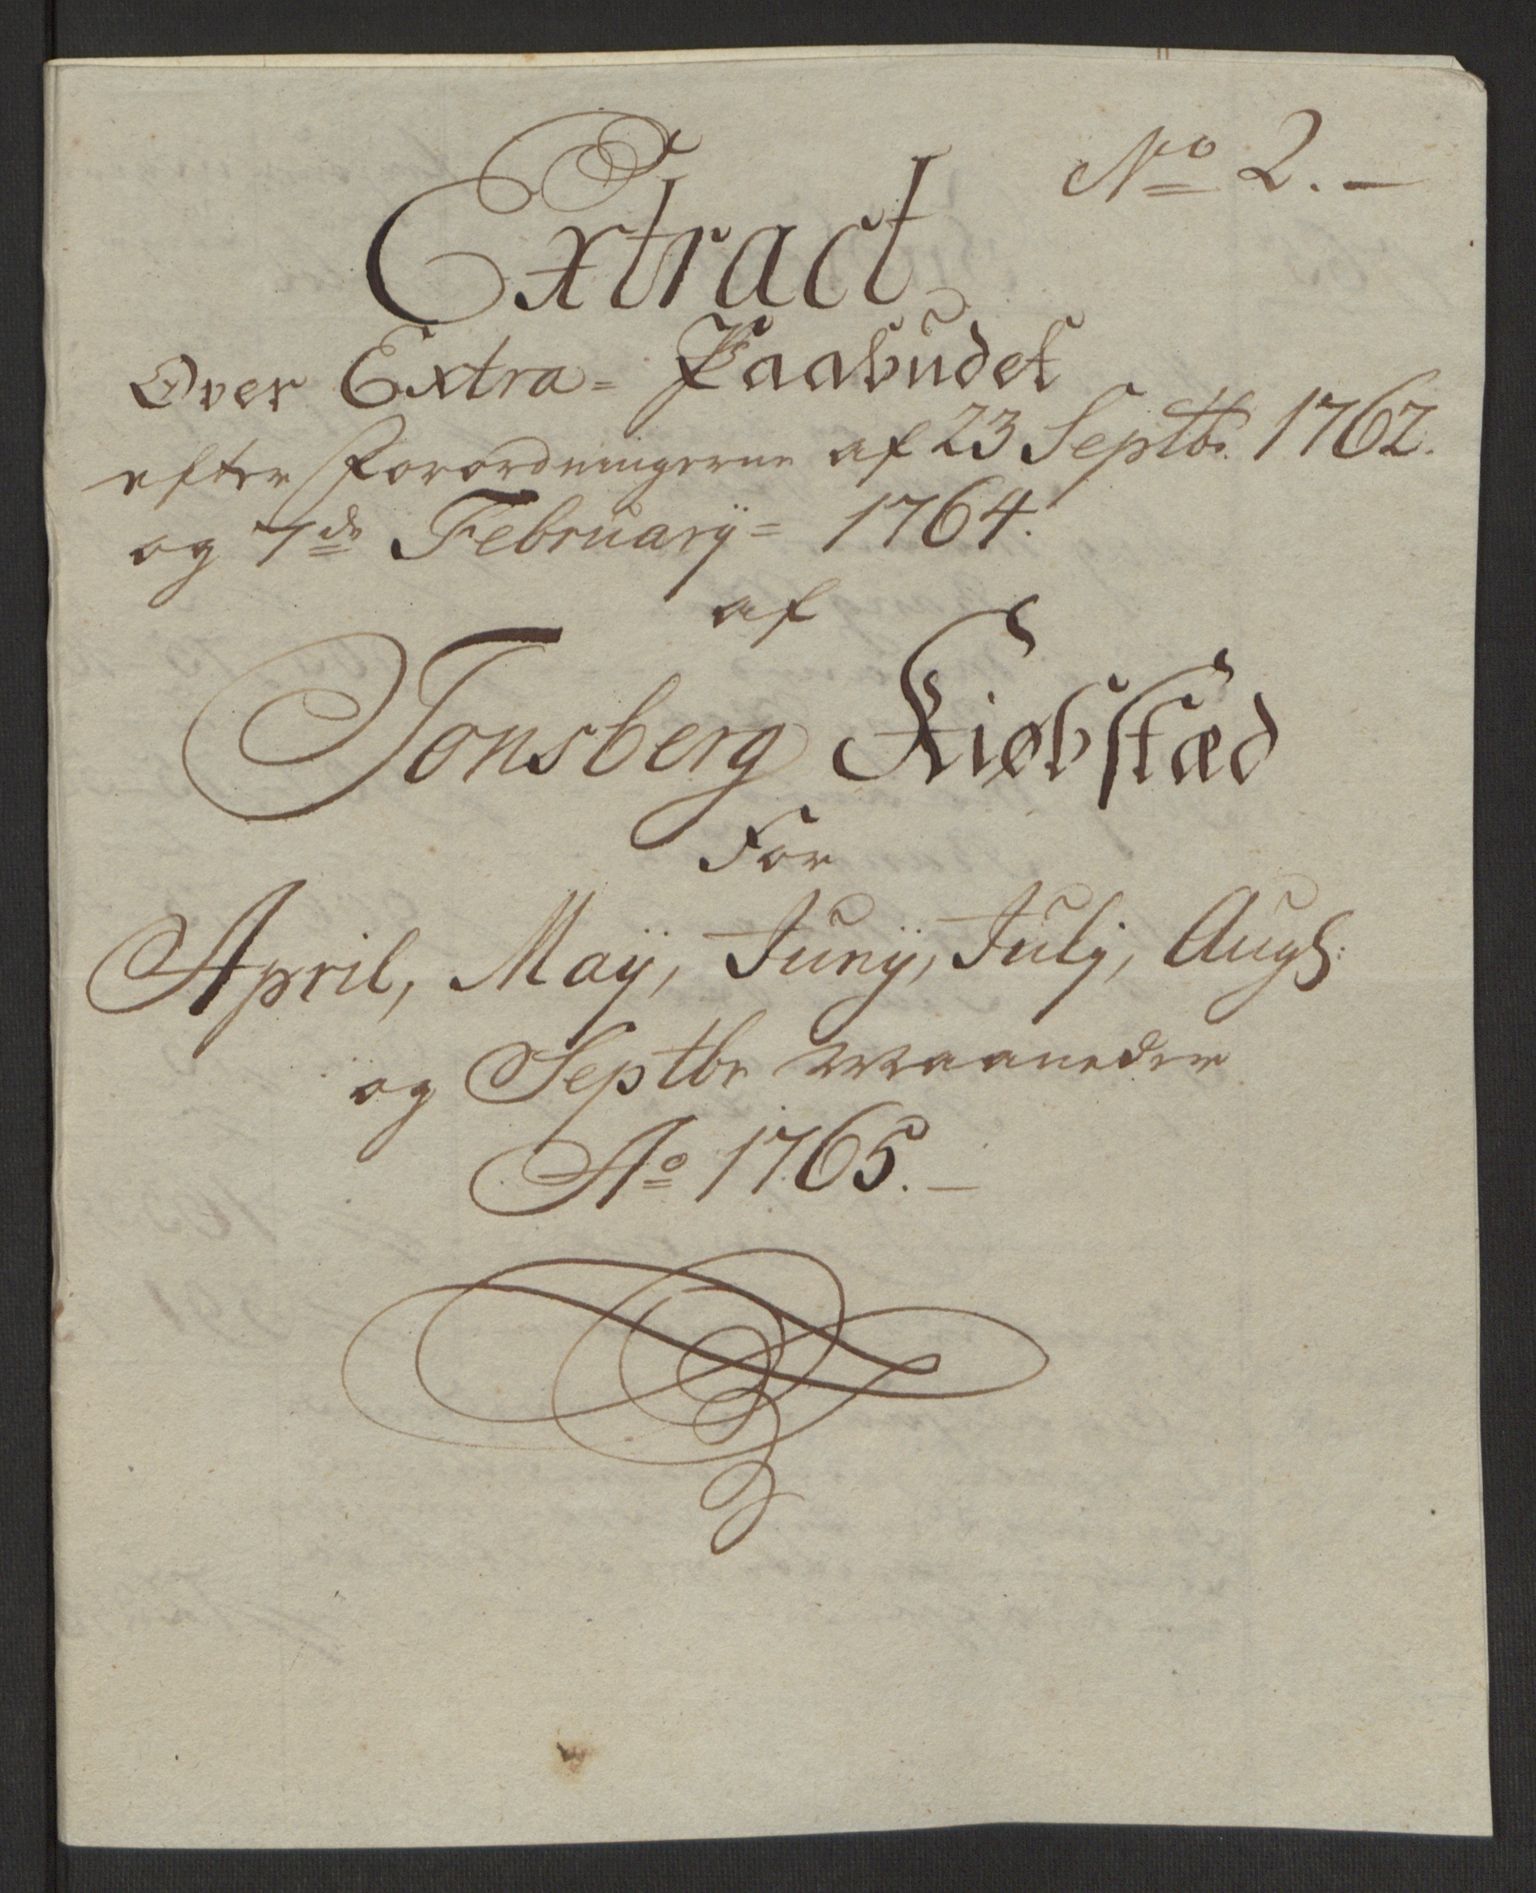 No 2. —
Extract
Over Extra= Paabudet
efter Forordningerne af 23 Septbr. 1762.
og 7de Februarÿ= 1764.
af
Tonsberg Kiøbstæd
For
April, Maÿ, Junÿ, Julÿ, Augs:
og Septbr Maaneder
Ao 1765. —